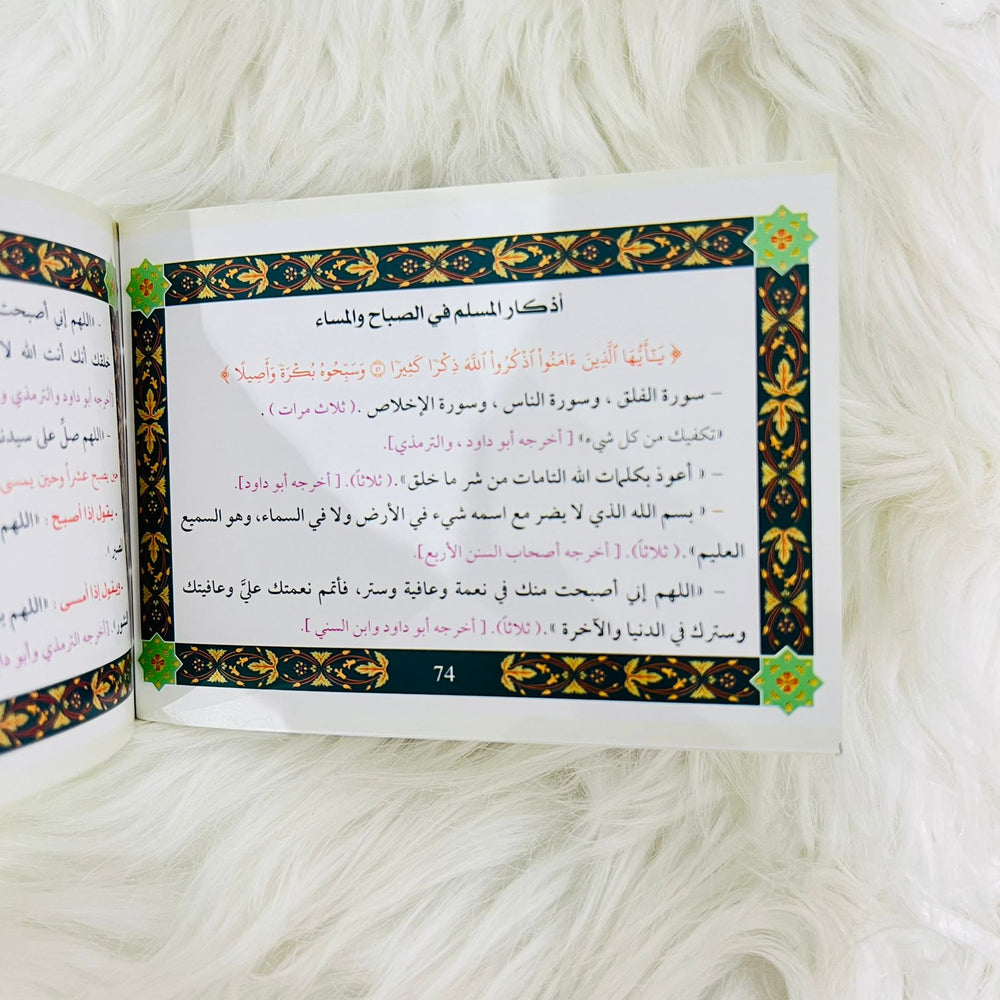 أذكار المسلم في الصباح والمساء
﴿ يَـٰٓأَيُّهَا ٱلَّذِينَ ءَامَنُوا۟ ٱذْكُرُوا۟ ٱللَّهَ ذِكْرًا كَثِيرًا ۝٤١ وَسَبِّحُوهُ بُكْرَةً وَأَصِيلًا ﴾
– سورة الفلق ، وسورة الناس ، وسورة الإخلاص .( ثلاث مرات ) .
«تكفيك من كل شيء» [ أخرجه أبو داود ، والترمذي].
– « أعوذ بكلمات الله التامات من شر ما خلق».( ثلاثاً). [ أخرجه أبو داود].
– « بسم الله الذي لا يضر مع اسمه شيء في الأرض ولا في السماء، وهو السميع
العليم» .( ثلاثاً). [ أخرجه أصحاب السنن الأربع].
– «اللهم إني أصبحت منك في نعمة وعافية وستر، فأتمم نعمتك عليَّ وعافيتك
وسترك في الدنيا والآخرة » .( ثلاثاً). [ أخرجه أبو داود وابن السني ].
74
- «اللهم إني أصبحت
خلقك أنك أنت الله لا
[أخرجه أبو داود والترمذي
- «اللهم صلِّ على
حين يصبح عشراً وحين يمسي
- يقول إذا أصبح : «اللهم
- ويقول إذا أمسى : «اللهم
[أخرجه الترمذي وأبو